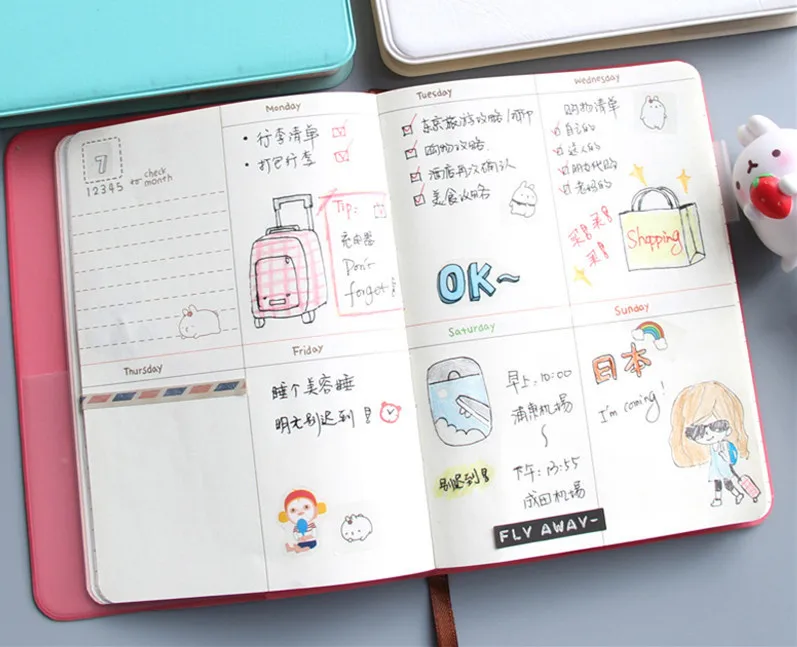 7
12345 ← check
month
Monday
• 行李清单
• 打包行李
Tip:
充电器
Don't
forget
Tuesday
东京旅游攻略/打印
购物攻略
酒店再次确认
美食攻略
OK~
Wednesday
购物清单
自己的
送人的
朋友代购
老妈的
买! 买!
买!
Shopping
Thursday
Friday
睡个美容觉
明天别迟到!
Saturday
早上:10:00
浦东机场
~
下午:13:55
成田机场
别迟到!
FLY AWAY~
Sunday
日本
I'm coming!